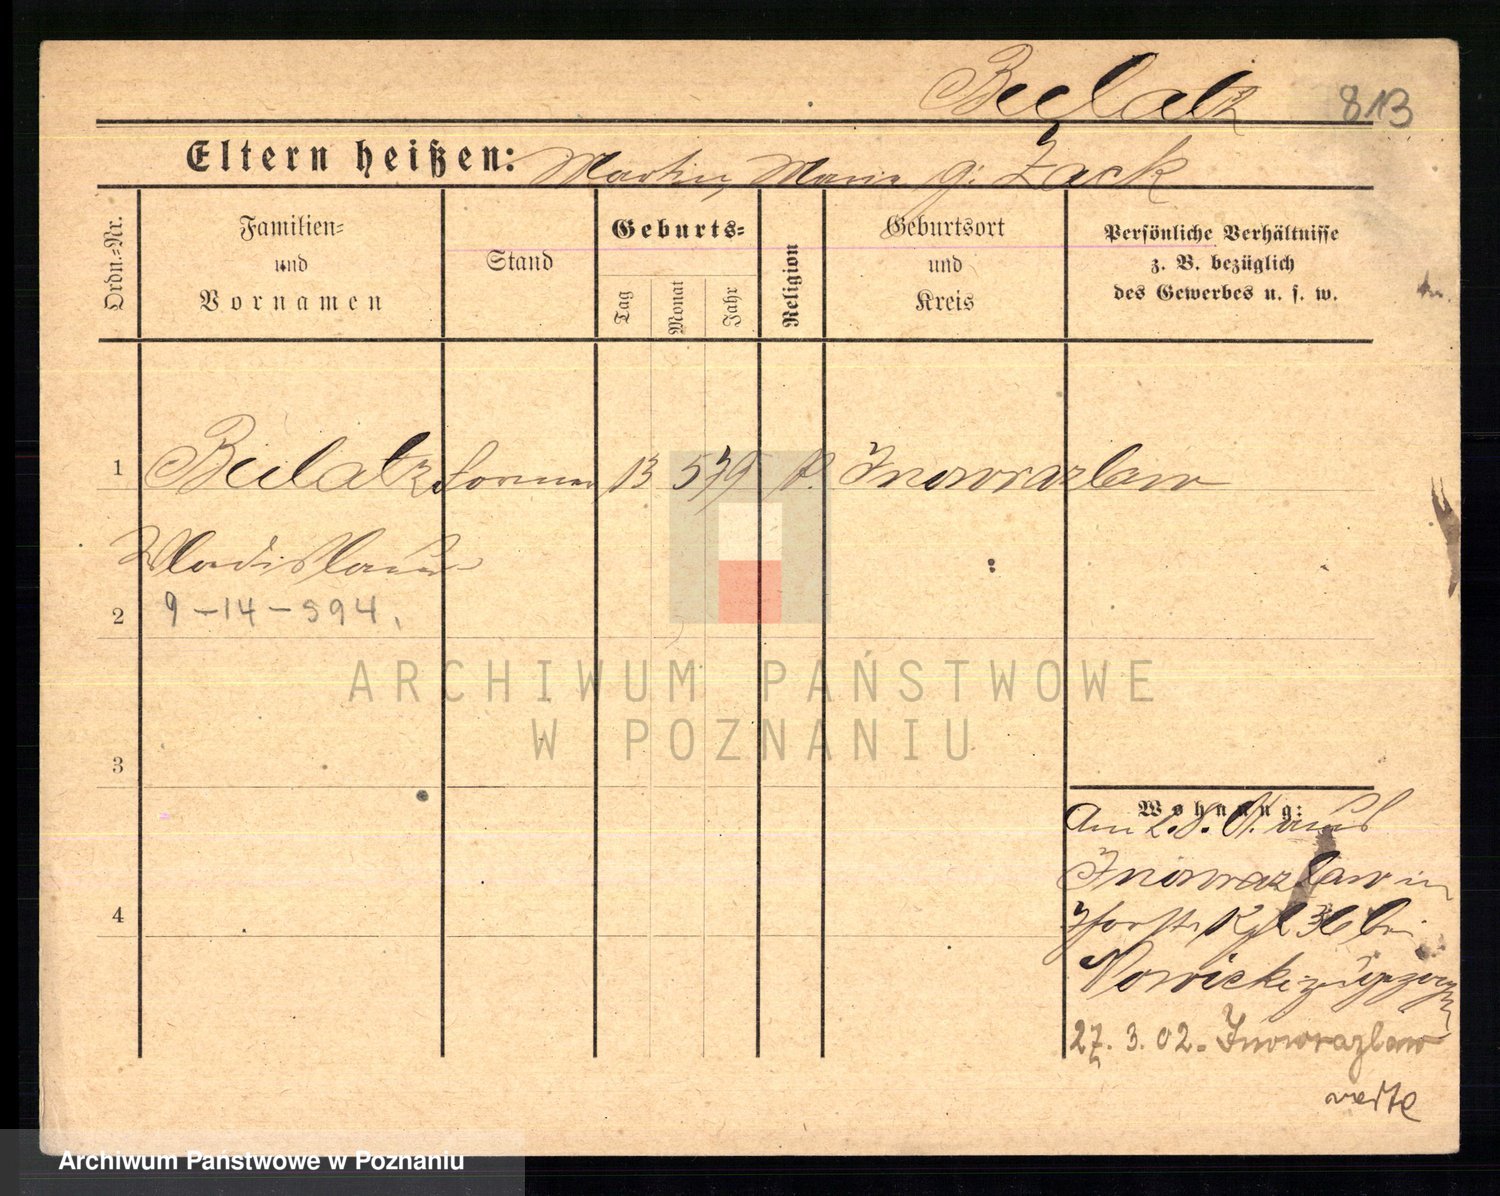 Beelatz
813
Eltern heißen: Martin, Marie g. Zack
Ordn.-Nr.
Familien-
und
Vornamen
Stand
Geburts-
Tag
Monat
Jahr
Religion
Geburtsort
und
Kreis
Persönliche Verhältnisse
z. B. bezüglich
des Gewerbes u. s. w.
1 Beelatz former 13 5 79 k. Inowrazlaw
Wladislaus
2 9-14-594.
3
4
Wohnung:
Am 2.8.01. aus
Inowrazlaw in
36 bei
Nowicki zugezogen
27. 3. 02. Inowrazlaw
verte
ARCHIWUM PAŃSTWOWE
W POZNANIU
Archiwum Państwowe w Poznaniu